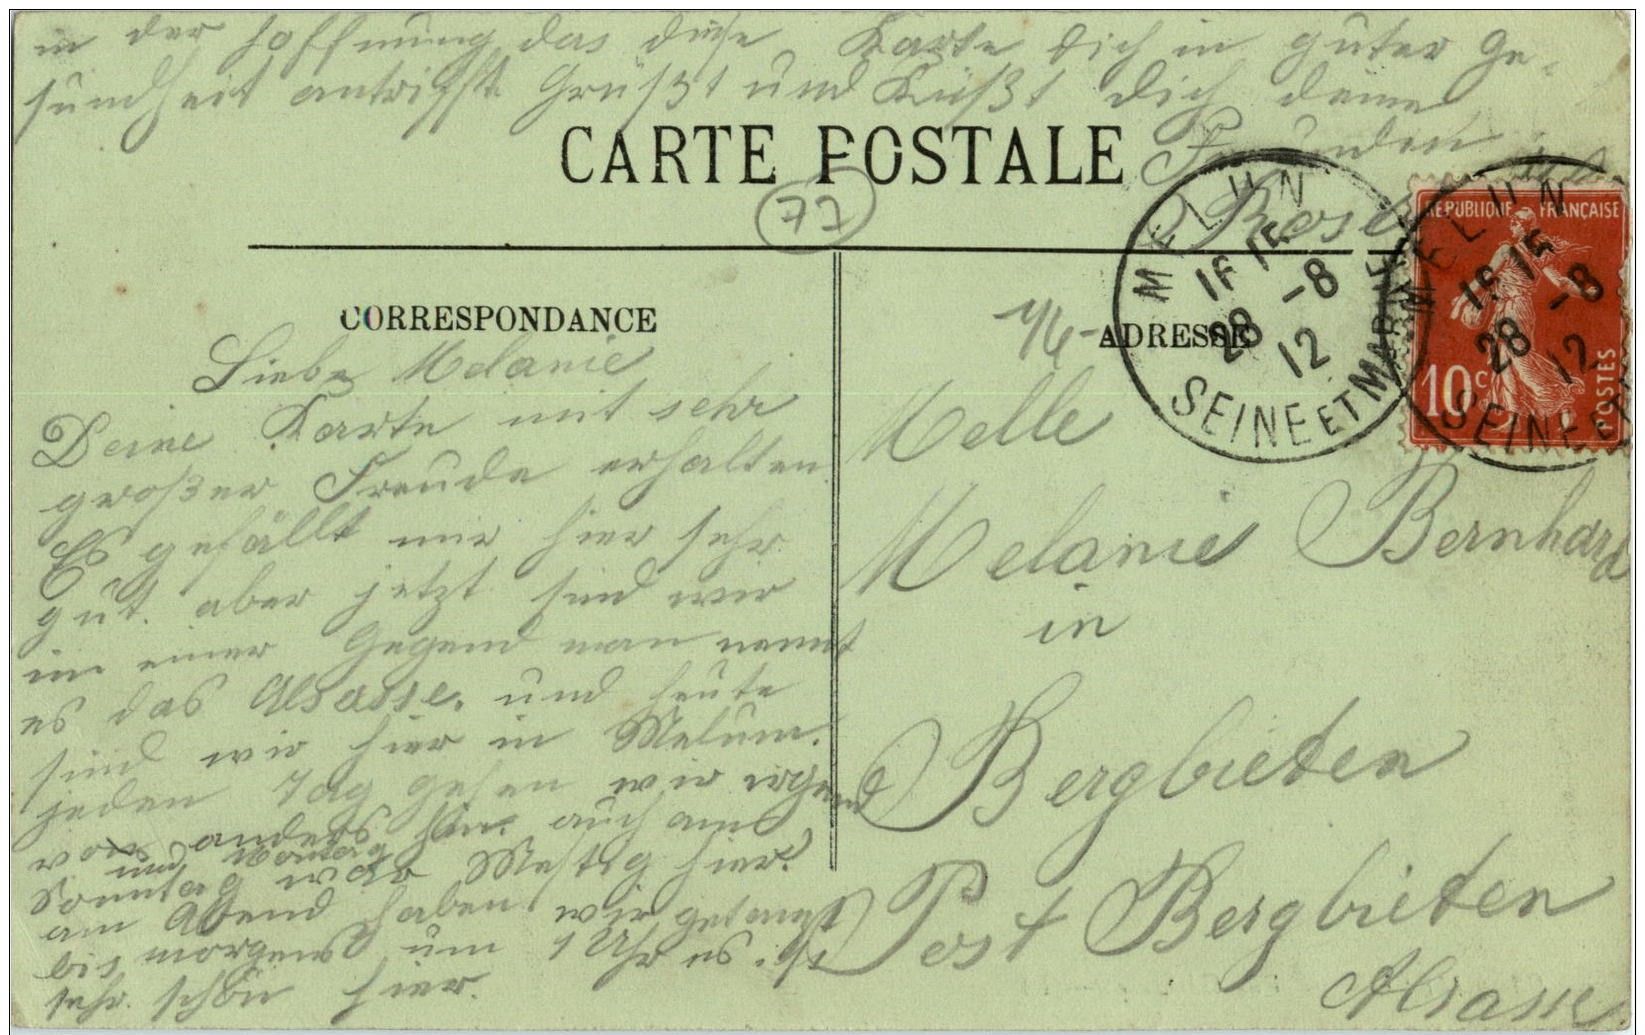 in der hoffnung das diese Karte dich in guter Ge-
sundheit antrifft. Grüßt und Küßt dich deine
Freundin
Rosel
CARTE POSTALE
77
CORRESPONDANCE
Liebe Melanie
Deine Karte mit sehr
großer Freude erhalten
Es gefällt mir hier sehr
gut. aber jetzt sind wir
in einer Gegend man nennt
es das Alsasse. und heute
sind wir hier in Melum.
jeden Tag gehen wir irgend
wo anders hin. auch am
und Montag
Sonntag war Mestig hier.
am Abend haben wir getanzt
bis morgens um 1 Uhr es ist
sehr schön hier.
ADRESSE
Melle
Melanie Bernhard
in
Bergbieten
Post Bergbieten
Alsasse
MELUN
28 -8
12
SEINE ET MARNE
REPUBLIQUE FRANÇAISE
10c
POSTES
MELUN
28 -8
12
SEINE ET